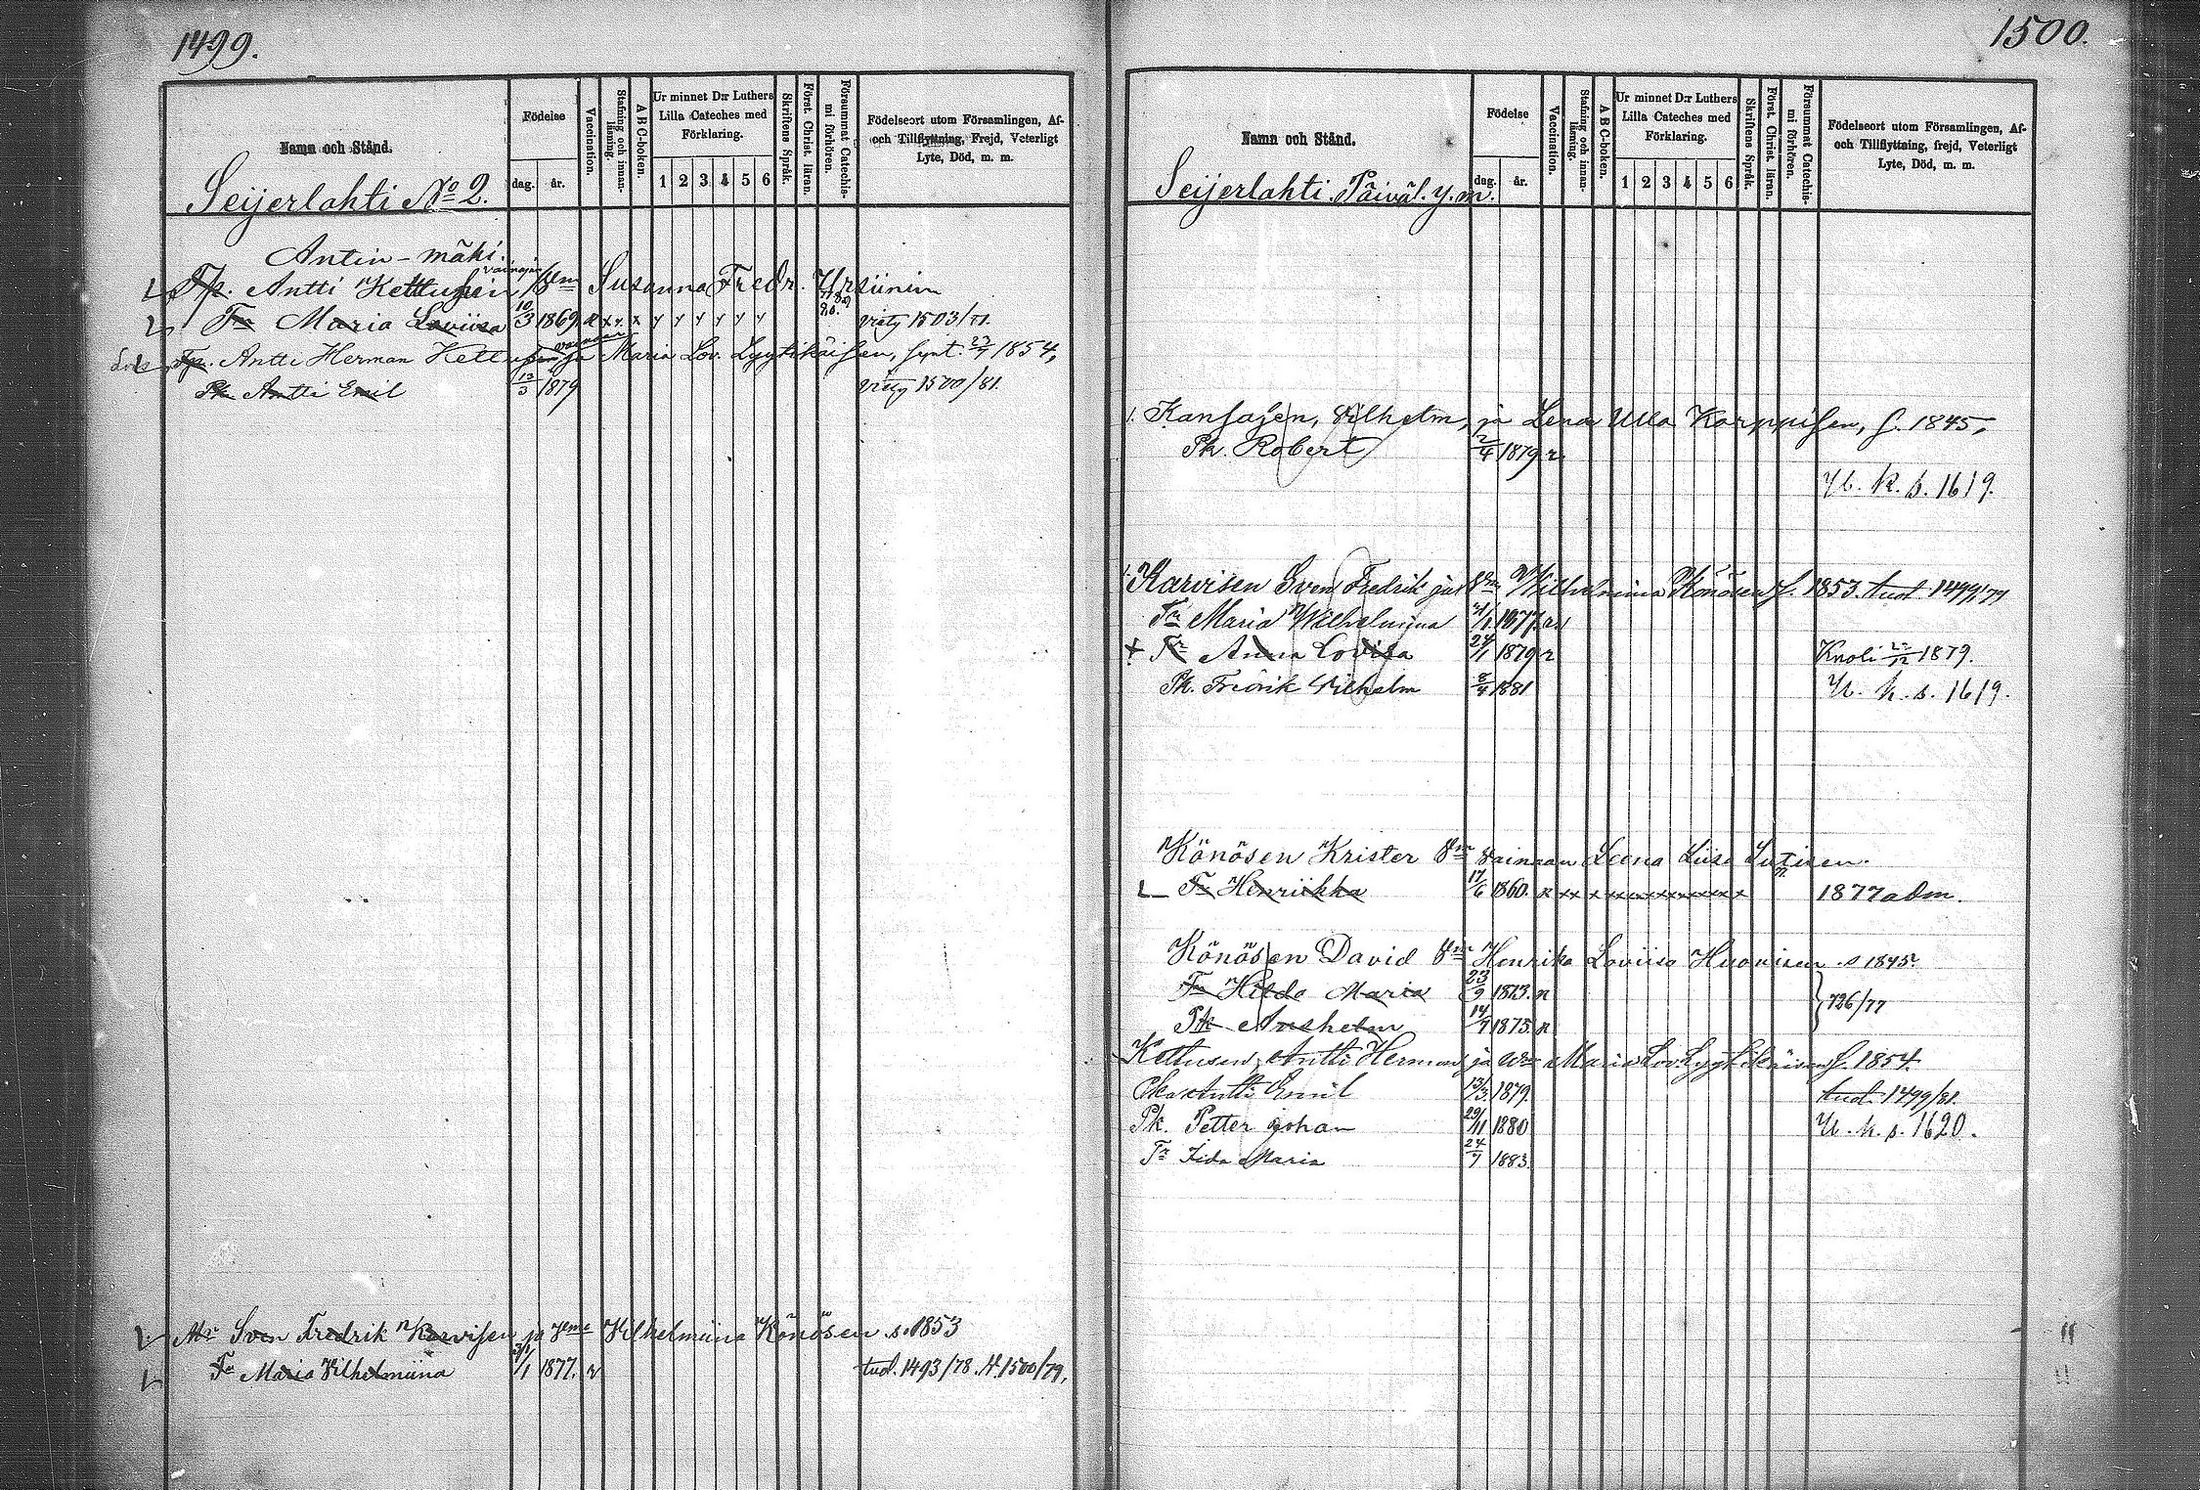 1499.
Namn och Stånd.
Födelse
dag.
år.
Vaccination.
Stafning och innanläsning.
A B C-boken.
Ur minnet D:r Luthers
Lilla Cateches med
Förklaring.
1 2 3 4 5 6
Skriftens Språk.
Förest. Christ. läran.
Försummat Catechismi förhören.
Födelseort utom Församlingen, Af-
och Tillflyttning, Frejd, Veterligt
Lyte, Död, m. m.
Seijerlahti No 2.
Antin-mäki.
Tp. Antti Kettusen vainajan Vmo Susanna Fredr. Ursiinin
Tr Maria Loviisa 10/3 1869
1503/
Tp. Antti Herman Kettusen ja Maria Lov. Lyytikäisen, synt. 1854,
Pk Antti Emil 13/3 1879 1500/81.
Mr Sven Fredrik Karvisen ja Vmo Vilhelmiina Könösen s. 1853
Tr Maria Vilhelmiina 1877. tud. 1493/78. 1500/79,
1500.
Namn och Stånd.
Födelse
dag.
år.
Vaccination.
Stafning och innanläsning.
A B C-boken.
Ur minnet D:r Luthers
Lilla Cateches med
Förklaring.
1 2 3 4 5 6
Skriftens Språk.
Förest. Christ. läran.
Försummat Catechismi förhören.
Födelseort utom Församlingen, Af-
och Tillflyttning, frejd, Veterligt
Lyte, Död, m. m.
Seijerlahti. Päiväl. y. m.
Kansasen, Vilhelm, ja Lena Ulla Karppisen, s. 1845,
Pk. Robert 2/4 1879 r
U. k. s. 1619.
Karvisen Sven Fredrik ja Vmo Wilhelmina Könösen s. 1853. tud. 1499/79
Tr Maria Wilhelmina 1877.
+ Tr Anna Lovisa 24/11 1879 r Kuoli 22/12 1879.
Pk. Fredrik Vilhelm 8/4 1881 U. k. s. 1619.
Könösen Krister Vmo vainaan Leena Liisa Lutisen.
Tr Henriikka 17/6 1860. 1877 adm.
Könösen David Vmo Henrika Loviisa Huovisen s 1845.
Tr Hilda Maria 23/9 1873. 726/77
Pk Anshelm 1875
Kettusen, Antti Herman ja vmo Maria Lov. Lyytikäisen s. 1854.
Pka Antti Emil 13/3 1879. tud. 1499/81.
Pk. Petter Johan 29/11 1880 U. k. s. 1620.
Tr Iida Maria 24/7 1883.